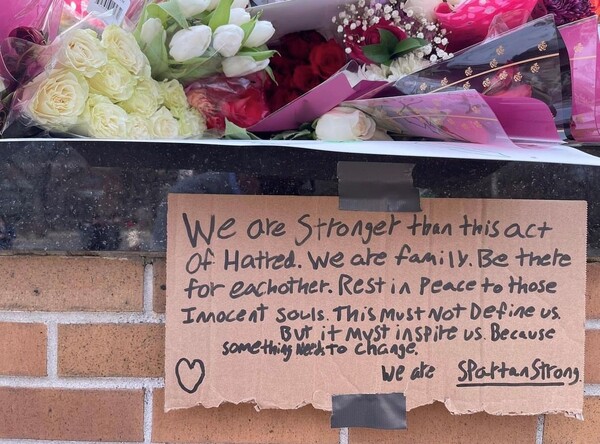 We are Stronger than this act
Of Hatred. We are family. Be there
for eachother. Rest in Peace to those
Innocent Souls. This Must Not Define us.
But it Myst inspire us. Because
something Needs to change.
We are SpartanStrong.